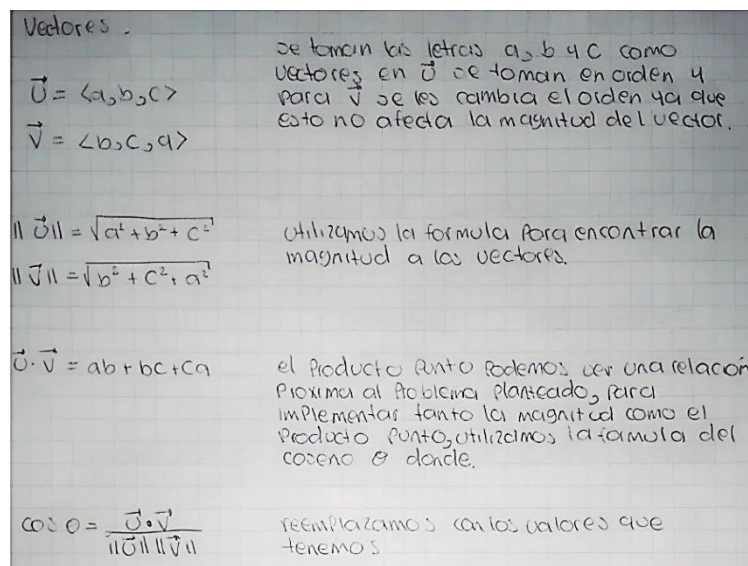 Vectores.
se toman las letras a, b y c como
vectores en U⃗ se toman en orden y
para V⃗ se les cambia el orden ya que
esto no afecta la magnitud del vector.
U⃗ = <a, b, c>
V⃗ = <b, c, a>
||U⃗|| = √(a² + b² + c²)
||V⃗|| = √(b² + c² + a²)
utilizamos la formula para encontrar la
magnitud a los vectores.
U⃗ · V⃗ = ab + bc + ca
el Producto Punto Podemos ver una relación
Proxima al Problema Planteado, Para
implementar tanto la magnitud como el
Producto Punto, utilizamos la formula del
coseno θ donde.
cos θ = U⃗ · V⃗ / ||U⃗|| ||V⃗||
reemplazamos con los valores que
tenemos